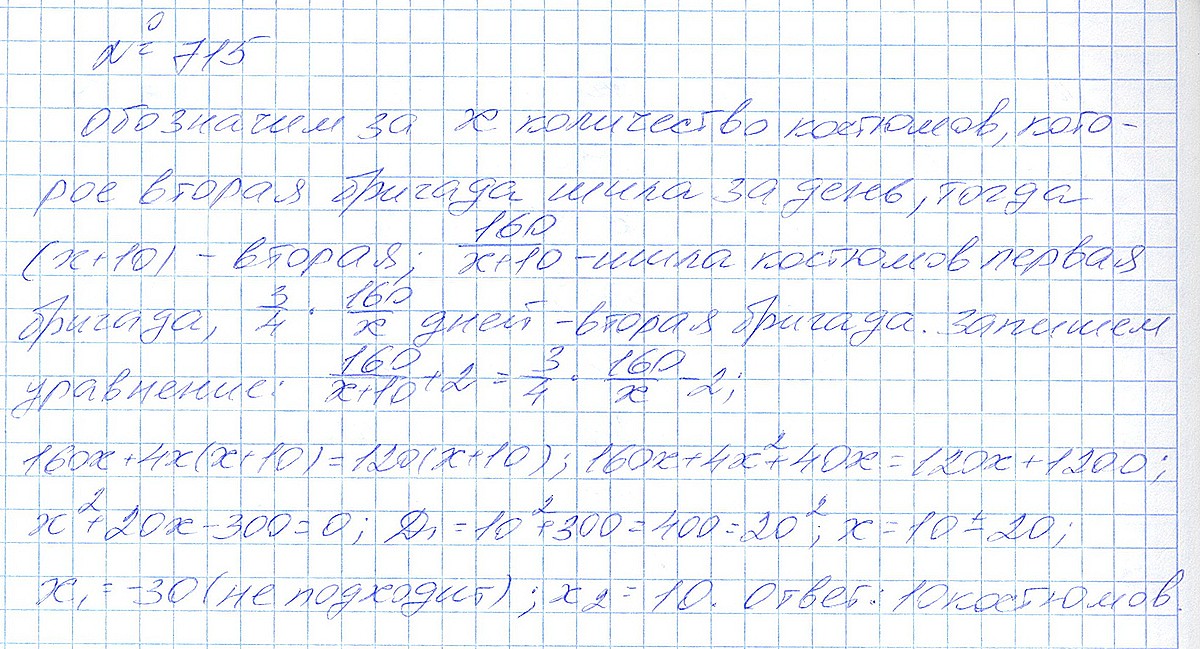 № 715
Обозначим за x количество костюмов, кото-
рое вторая бригада шила за день, тогда
(x+10) - вторая; 160/(x+10) - шила костюмов первая
бригада, 3/4 · 160/x дней - вторая бригада. Запишем
уравнение: 160/(x+10) + 2 = 3/4 · 160/x - 2;
160x+4x(x+10)=120(x+10); 160x+4x²+40x=120x+1200;
x²+20x-300=0; D₁=10²+300=400=20²; x=10±20;
x₁=-30 (не подходит); x₂=10. Ответ: 10 костюмов.